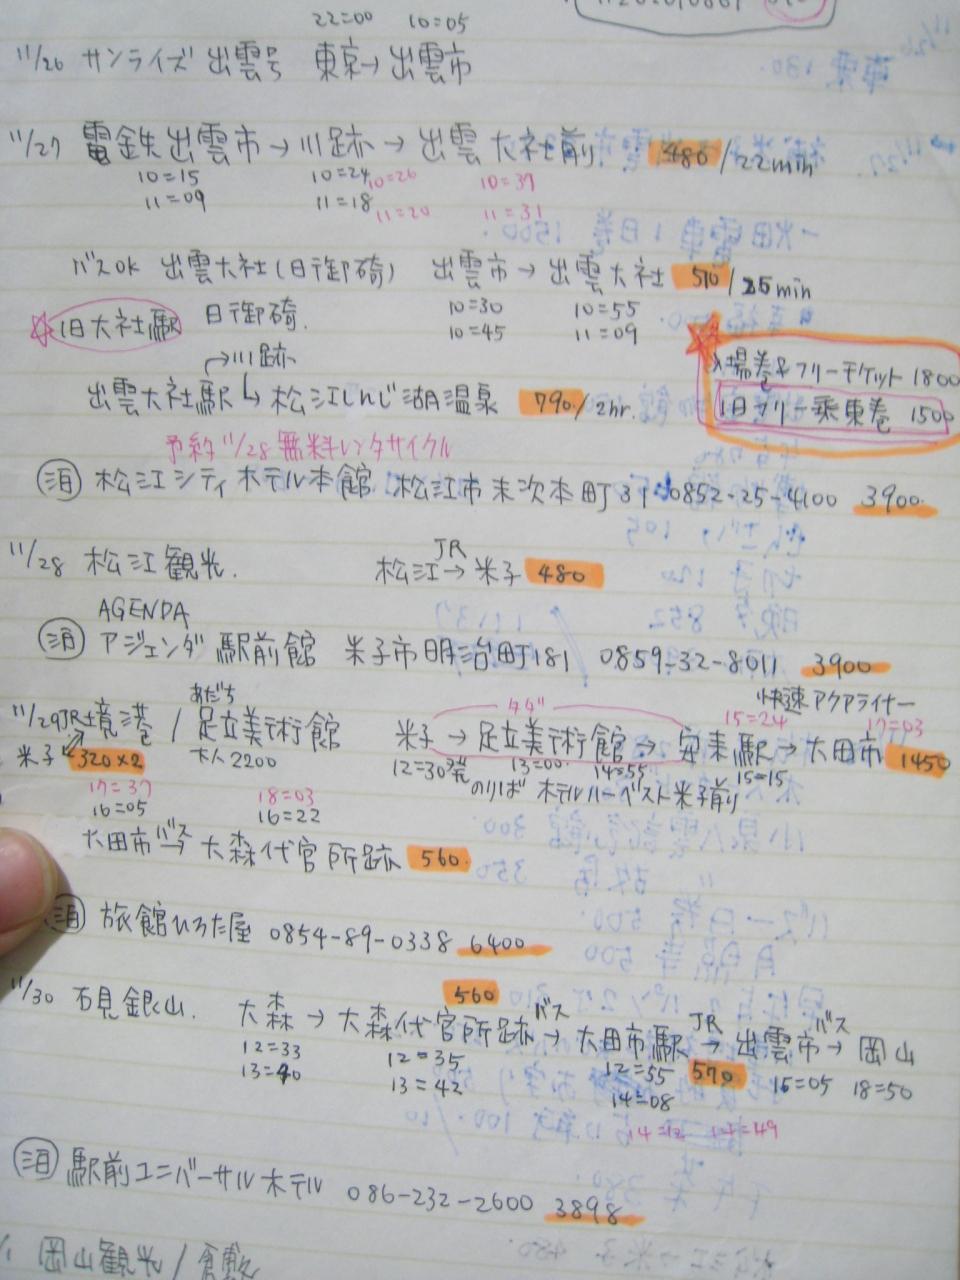 22=00 10=05
11/26 サンライズ 出雲号 東京→出雲市
11/27 電鉄出雲市→川跡→出雲大社前 480/22min
10=15 10=24 10=26 10=39
11=09 11=18 11=20 11=31
バスOK 出雲大社(日御碕) 出雲市→出雲大社 510/25min
☆旧大社駅 日御碕. 10=30 10=55
10=45 11=09
→川跡
入場巻&フリーチケット 1800
出雲大社駅↳松江しんじ湖温泉 790/2hr.
1日フリー乗車巻 1500
予約 11/28 無料レンタサイクル
泊 松江シティホテル本館 松江市末次本町31 0852-25-4100 3900
11/28 松江観光. JR 松江→米子 480
AGENDA
泊 アジェンダ駅前館 米子市明治町181 0859-32-8011 3900
快速アクアライナー
あだち 44" 15=24 17=03
11/29 JR境港 / 足立美術館 米子→足立美術館→安来駅→大田市 1450
米子 320×2 本人2200 12=30発 13=00 14=55 15=15
のりば ホテルハーベスト米子前
17=37 18=03
16=05 16=22
大田市 バス→ 大森代官所跡 560
泊 旅館ひろた屋 0854-89-0338 6400
11/30 石見銀山. 560
大森→大森代官所跡 バス→ 大田市駅 JR→ 出雲市 バス→ 岡山
12=33 12=35 12=55 570 15=05 18=50
13=40 13=42 14=08
14=12 14=49
泊 駅前ユニバーサルホテル 086-232-2600 3898
岡山観光/倉敷